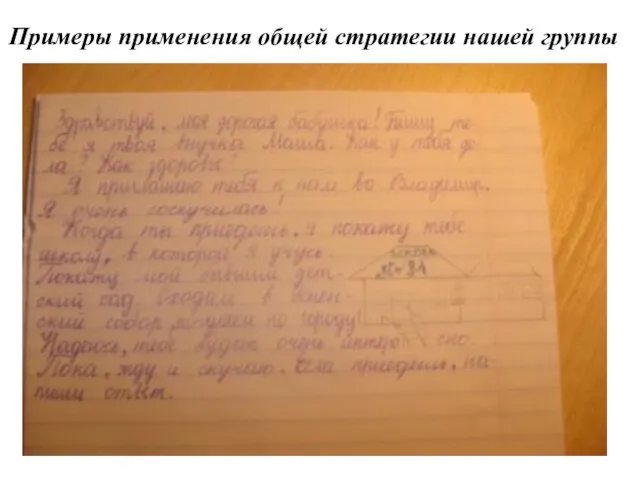 Примеры применения общей стратегии нашей группы
Здравствуй, моя дорогая бабушка! Пишу те-
бе я твоя внучка Маша. Как у тебя де-
ла? Как здоровье?
Я приглашаю тебя к нам во Владимир.
Я очень соскучилась!
Когда ты приедешь, я покажу тебе
школу, в которой я учусь.
Покажу мой бывший дет-
ский сад сходим в
ский собор, по городу!
Надеюсь, тебе будет очень интересно.
Пока, жду и скучаю. Если приедешь, на-
пиши ответ.
школа
№